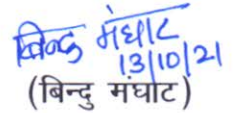 बिन्दु मंघाट
13/10/21
(बिन्दु मंघाट)